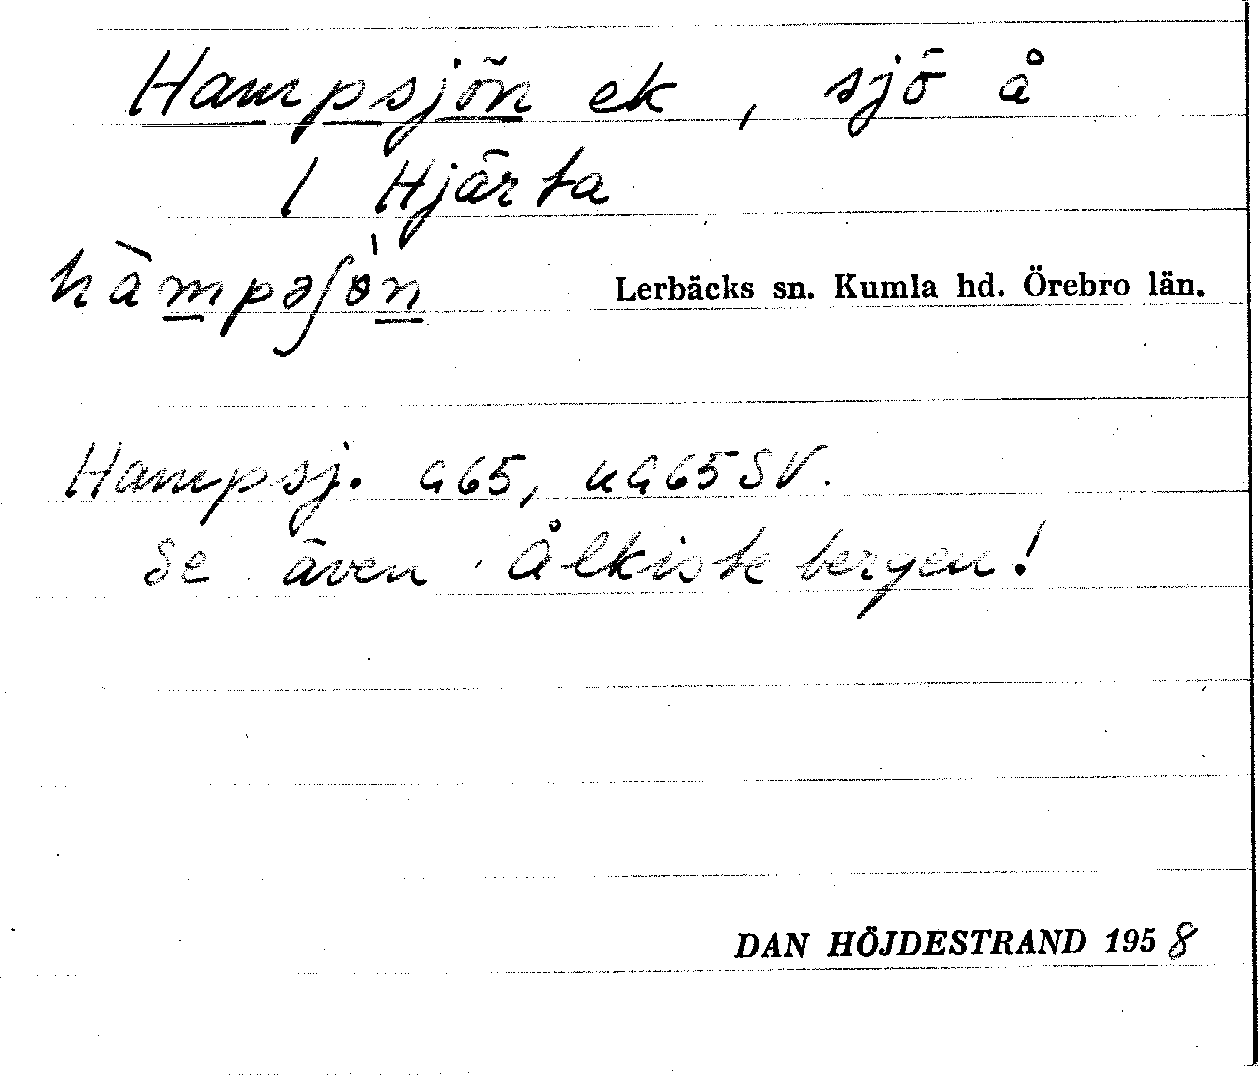 Hampsjön ek, sjö å
1 Hjärta
hàmpəʃö́n Lerbäcks sn. Kumla hd. Örebro län.
Hampsj. G65, uG65SV.
Se även Ålkistebergen!
DAN HÖJDESTRAND 1958